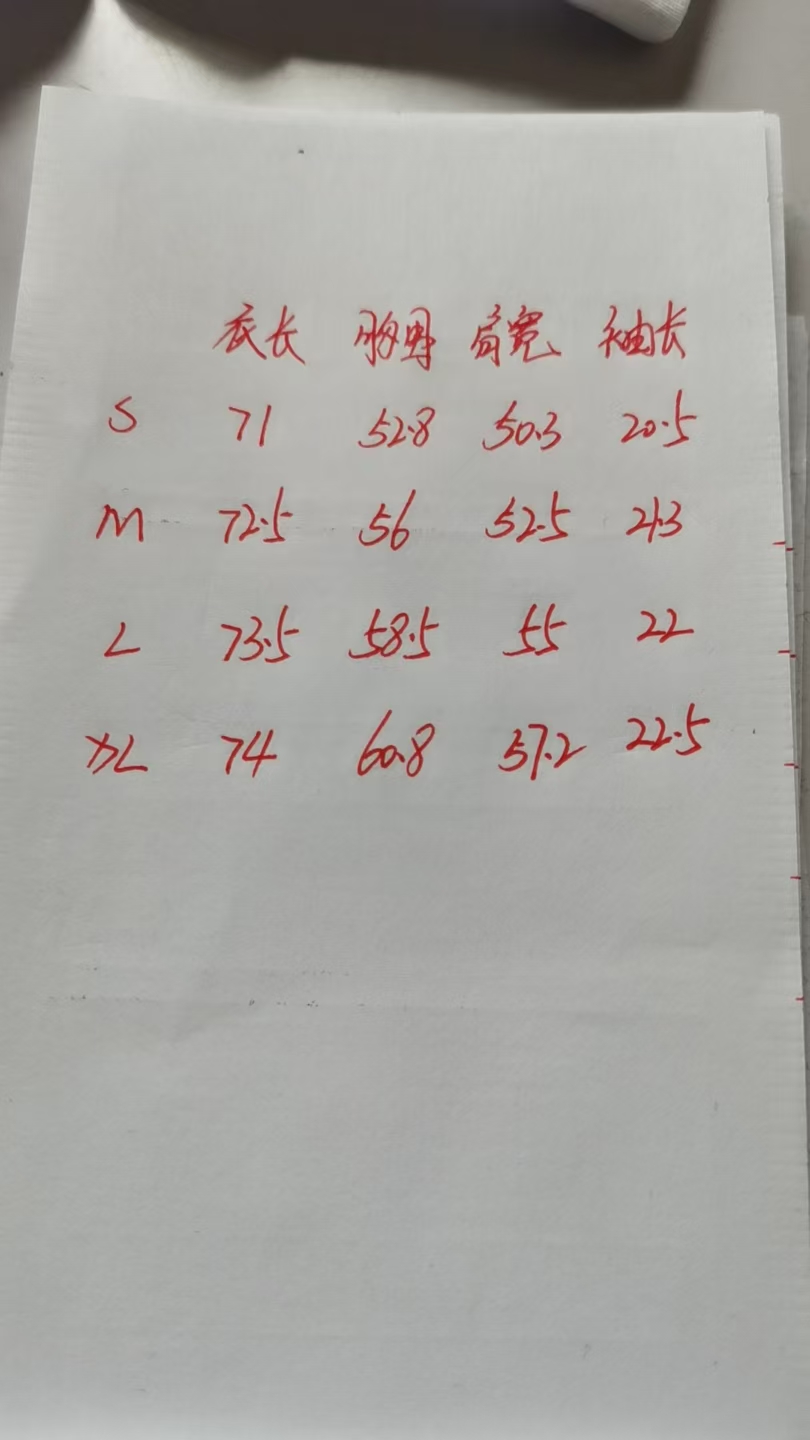 衣长 胸围 肩宽 袖长
S 71 52.8 50.3 20.5
M 72.5 56 52.5 21.3
L 73.5 58.5 55 22
XL 74 60.8 57.2 22.5